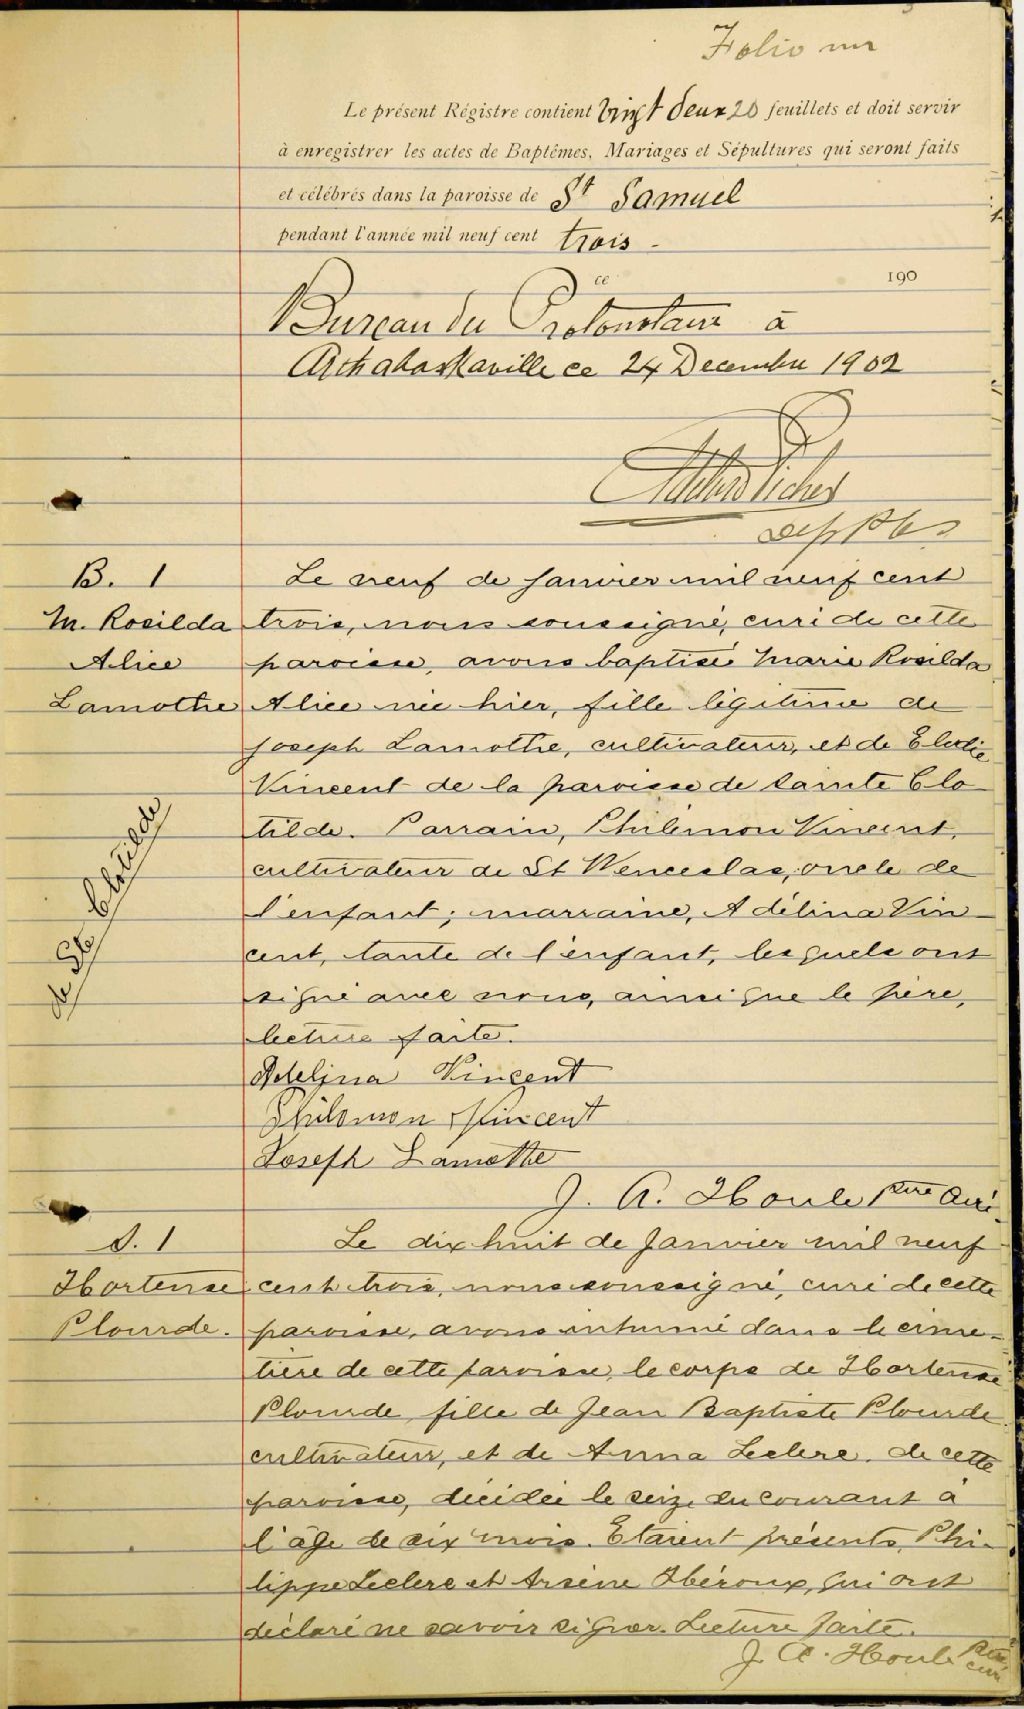 Folio un
Le présent Régistre contient vingt deux 20 feuillets et doit servir
à enregistrer les actes de Baptêmes, Mariages et Sépultures qui seront faits
et célébrés dans la paroisse de St Samuel
pendant l'année mil neuf cent trois -
ce 190
Bureau du Protonotaire à
Arthabaskaville ce 24 Decembre 1902
B. 1
M. Rosilda
Alice
Lamothe
de Ste Clotilde
Le neuf de janvier mil neuf cent
trois, nous soussigné, curé de cette
paroisse, avons baptisé Marie Rosilda
Alice née hier, fille légitime de
Joseph Lamothe, cultivateur, et de Elodie
Vincent de la paroisse de Sainte Clo-
tilde. Parrain, Philemon Vincent,
cultivateur de St Wenceslas, oncle de
l'enfant; marraine, Adélina Vin-
cent, tante de l'enfant, lesquels ont
signé avec nous, ainsi que le père,
lecture faite.
Adeljna Vincent
Philomon Vincent
Joseph Lamothe
J. A. Houle Ptre Curé.
S. 1
Hortense
Plourde.
Le dix huit de Janvier mil neuf
cent trois, nous soussigné, curé de cette
paroisse, avons inhumé dans le cime-
tière de cette paroisse, le corps de Hortense
Plourde, fille de Jean Baptiste Plourde
cultivateur, et de Anna Leclerc, de cette
paroisse, décédée le seize du courant à
l'âge de six mois. Etaient présents, Phi-
lippe Leclerc et Arsène Héroux, qui ont
déclaré ne savoir signer. Lecture faite.
J. A. Houle Ptre
curé